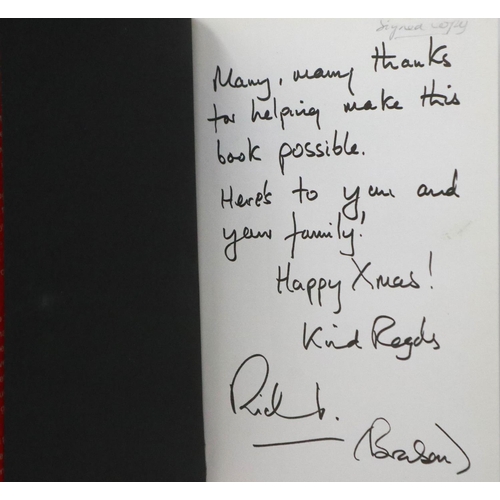 Signed copy
Many, many thanks
for helping make this
book possible.
Here's to you and
your family!
Happy Xmas!
Kind Regds
Rich
(Branson)